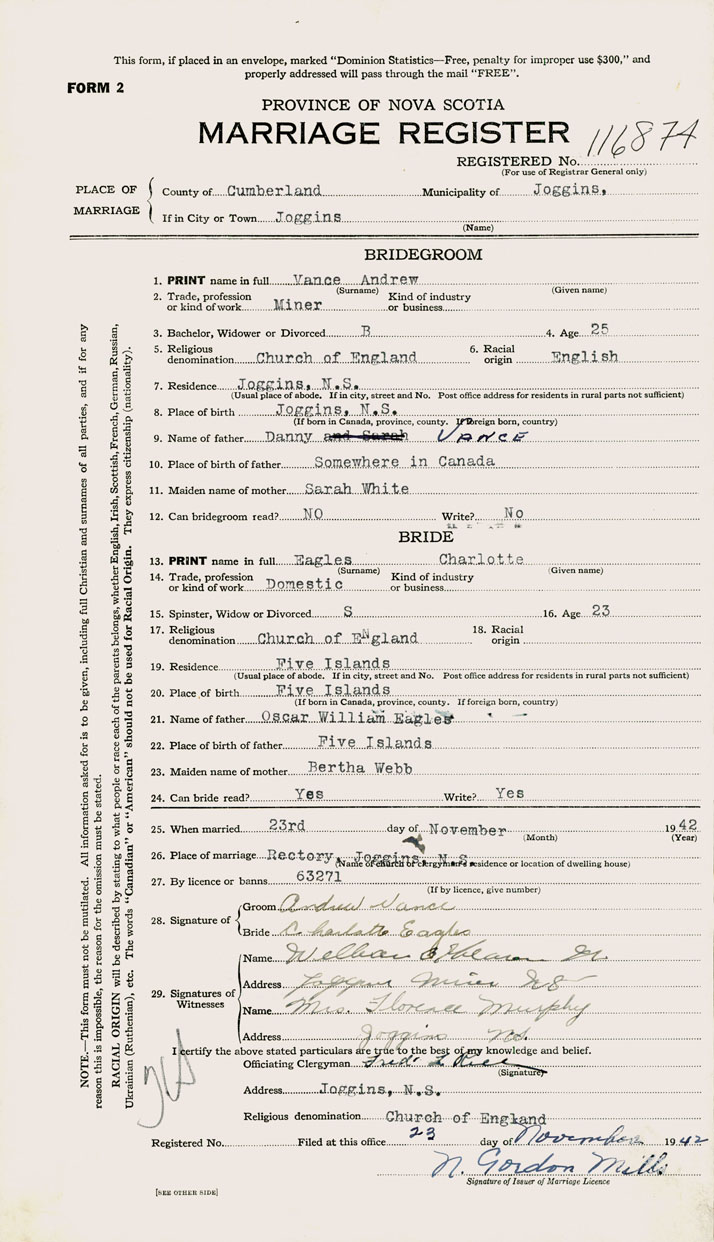 This form, if placed in an envelope, marked "Dominion Statistics—Free, penalty for improper use $300," and
properly addressed will pass through the mail "FREE".
FORM 2
PROVINCE OF NOVA SCOTIA
MARRIAGE REGISTER 116874
REGISTERED No.
(For use of Registrar General only)
PLACE OF MARRIAGE
County of Cumberland Municipality of Joggins,
If in City or Town Joggins
(Name)
BRIDEGROOM
1. PRINT name in full Vance Andrew
(Surname) (Given name)
2. Trade, profession or kind of work Miner Kind of industry or business
3. Bachelor, Widower or Divorced B 4. Age 25
5. Religious denomination Church of England 6. Racial origin English
7. Residence Joggins, N.S.
(Usual place of abode. If in city, street and No. Post office address for residents in rural parts not sufficient)
8. Place of birth Joggins, N.S.
(If born in Canada, province, county. If foreign born, country)
9. Name of father Danny and Sarah VANCE
10. Place of birth of father Somewhere in Canada
11. Maiden name of mother Sarah White
12. Can bridegroom read? NO Write? No
BRIDE
13. PRINT name in full Eagles Charlotte
(Surname) (Given name)
14. Trade, profession or kind of work Domestic Kind of industry or business
15. Spinster, Widow or Divorced S 16. Age 23
17. Religious denomination Church of ENgland 18. Racial origin
19. Residence Five Islands
(Usual place of abode. If in city, street and No. Post office address for residents in rural parts not sufficient)
20. Place of birth Five Islands
(If born in Canada, province, county. If foreign born, country)
21. Name of father Oscar William Eagles
22. Place of birth of father Five Islands
23. Maiden name of mother Bertha Webb
24. Can bride read? Yes Write? Yes
25. When married 23rd day of November 1942
(Month) (Year)
26. Place of marriage Rectory, Joggins, N.S.
(Name of church or clergyman's residence or location of dwelling house)
27. By licence or banns 63271
(If by licence, give number)
28. Signature of
Groom Andrew Vance
Bride Charlotte Eagles
29. Signatures of Witnesses
Name
Address Joggins Mines NS
Name Mrs. Florence Murphy
Address Joggins NS.
I certify the above stated particulars are true to the best of my knowledge and belief.
Officiating Clergyman
(Signature)
Address Joggins, N.S.
Religious denomination Church of England
Registered No. Filed at this office 23 day of November 1942
N. Gordon Mills
Signature of Issuer of Marriage Licence
[SEE OTHER SIDE]
NOTE.—This form must not be mutilated. All information asked for is to be given, including full Christian and surnames of all parties, and if for any
reason this is impossible, the reason for the omission must be stated.
RACIAL ORIGIN will be described by stating to what people or race each of the parents belongs, whether English, Irish, Scottish, French, German, Russian,
Ukrainian (Ruthenian), etc. The words "Canadian" or "American" should not be used for Racial Origin. They express citizenship (nationality).